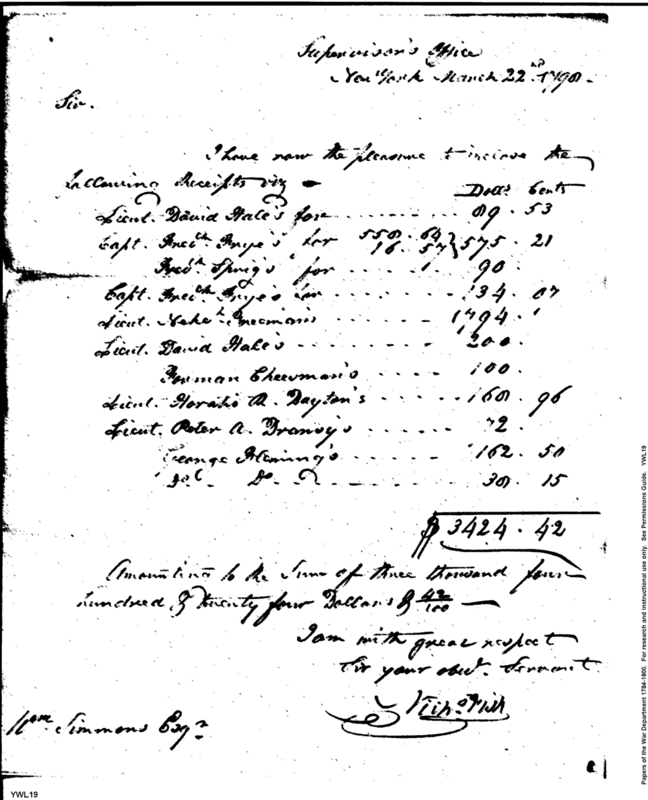 Supervisor's Office
New York March 22nd 1798
Sir.
I have now the pleasure to inclose the
following Receipts viz
Dolls Cents
Lieut. David Hale's for 89. 53
Capt. Fredk Frye's for 558. 64 16. 57 } 575. 21
Fredk Sprigs for 90.
Capt. Fredk Frye's for 134. 07
Lieut. Freeman's 1794.
Lieut. David Hale's 200.
Forman Cheesman's 100.
Lieut. Horatio R. Dayton's 168. 96
Lieut. Peter A. 72.
George Fleming's 162. 50
Do Do 38. 15
$ 3424. 42
Amounting to the Sum of three thousand four
hundred & twenty four Dollars & 42/100
I am with great respect
Sir your obedt. Servant
Nichs Fish
Wm Simmons Esqr
YWL19
Papers of the War Department 1784-1800. For research and instructional use only. See Permissions Guide. YWL19